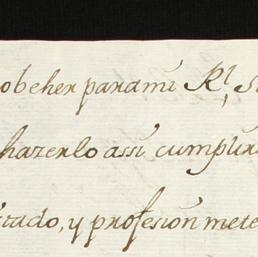 obeher parami Rl, S
hazerlo assi cumplir
tado, y profesion mete